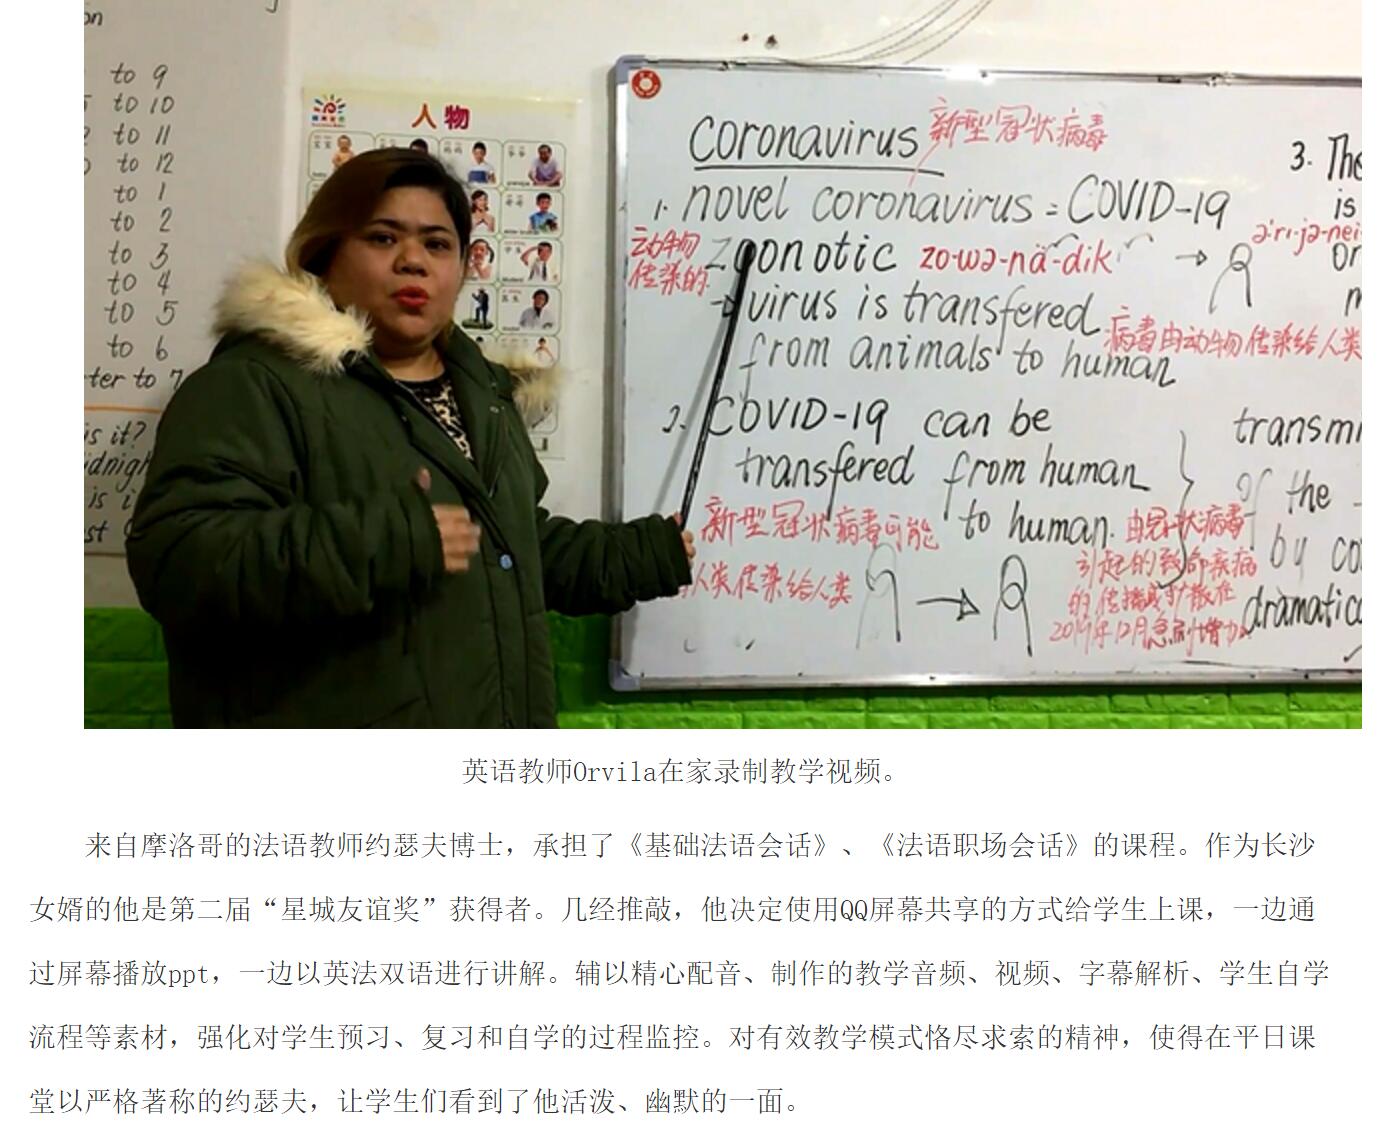 to 9
to 10
to 11
to 12
to 1
to 2
to 3
to 4
to 5
to 6
to 7
is it?
is
人物
coronavirus 新型冠状病毒
1. novel coronavirus = COVID-19
动物
传染的
zoonotic zo-wə-nä-dik →
→ virus is transfered
from animals to human
病毒由动物传染给人类
2. COVID-19 can be
transfered from human
to human.
新型冠状病毒可能
人类传染给人类
由冠状病毒
引起的致命疾病
的传播或扩散在
2019年12月急剧增加
3. The
is
of the
by
英语教师Orvila在家录制教学视频。
来自摩洛哥的法语教师约瑟夫博士，承担了《基础法语会话》、《法语职场会话》的课程。作为长沙
女婿的他是第二届“星城友谊奖”获得者。几经推敲，他决定使用QQ屏幕共享的方式给学生上课，一边通
过屏幕播放ppt，一边以英法双语进行讲解。辅以精心配音、制作的教学音频、视频、字幕解析、学生自学
流程等素材，强化对学生预习、复习和自学的过程监控。对有效教学模式恪尽求索的精神，使得在平日课
堂以严格著称的约瑟夫，让学生们看到了他活泼、幽默的一面。